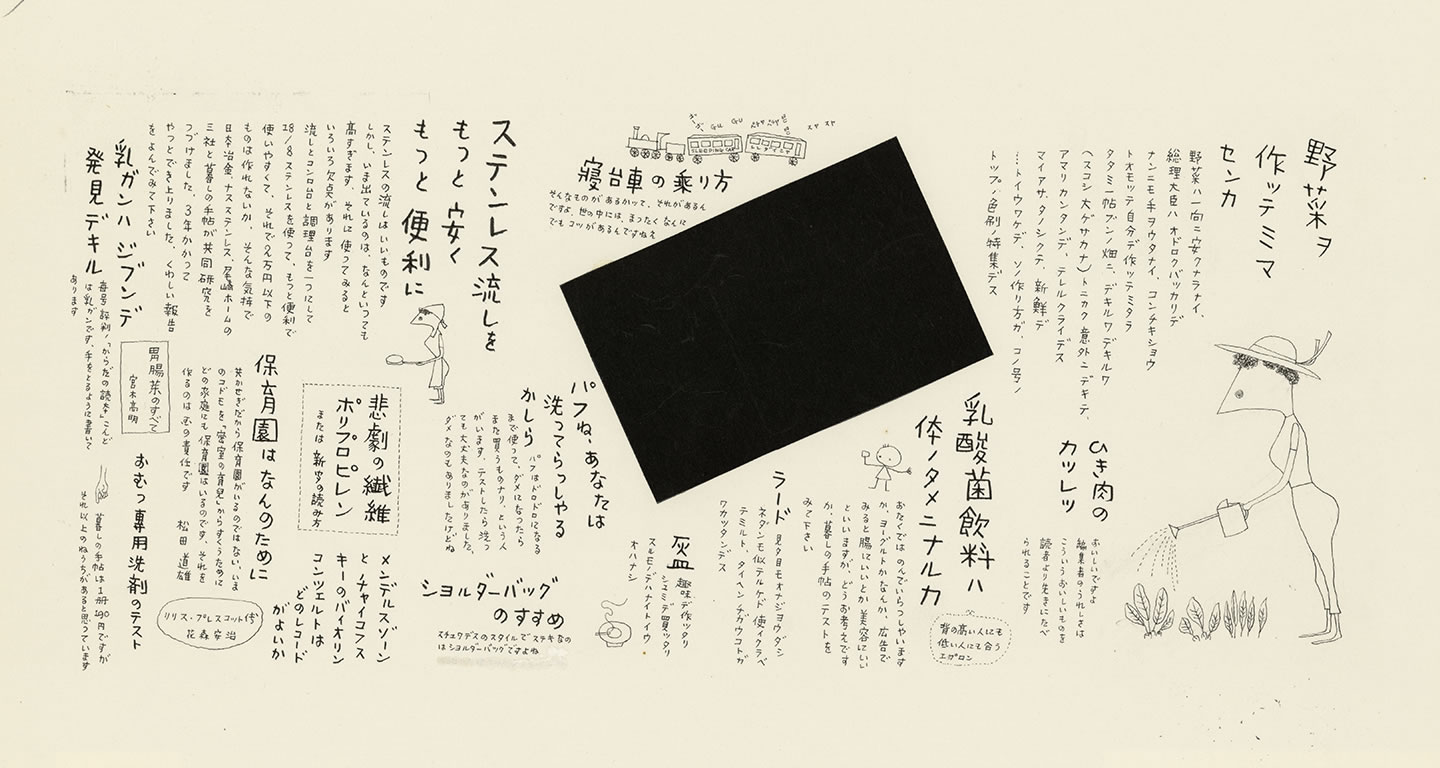 野菜ヲ
作ッテミマ
センカ
野菜ハ一向ニ安クナラナイ、
総理大臣ハ オドロクバッカリデ
ナンニモ手ヲウタナイ、コンチキショウ
トオモッテ自分デ作ッテミタラ
タタミ一帖ブンノ畑ニ、デキルワ デキルワ
(スコシ大ゲサカナ)トニカク意外ニデキテ、
アマリカンタンデ、テレルクライデス
マイアサ、タノシクテ、新鮮デ
…トイウワケデ、ソノ作リ方ガ、コノ号ノ
トップノ色刷ノ特集デス
ひき肉の
カツレツ
おいしいですよ
編集者のうれしさは
こういうおいしいものを
読者より先きにたべ
られることです
乳酸菌飲料ハ
体ノタメニナルカ
おたくではのんでいらっしゃいます
か、ヨーグルトかなんか、広告で
みると腸にいいとか美容にいい
といいますが、どうお考えです
か、暮しの手帖のテストを
みて下さい
背の高い人にも
低い人にも合う
エプロン
ラード
見タ目モオナジヨウダシ
ネダンモ似テルケド 使イクラベ
テミルト、タイヘンチガウコトガ
ワカッタンデス
灰皿
趣味デ作ッタリ
シュミデ買ッタリ
スルモノデハナイトイウ
オハナシ
GU GU
スヤ スヤ
SLEEPING CAR
寝台車の乗り方
そんなものがあるかって、それがあるん
ですよ、世の中には、まったくなんに
でもコツがあるんですねえ
パフね、あなたは
洗ってらっしゃる
かしら
パフはドロドロになる
まで使って、ダメになったら
また買うものナリ、という人
がいます、テストしたら洗っ
ても大丈夫なのがありました、
ダメなのもありましたけどね
ショルダーバッグ
のすすめ
スチュワデスのスタイルでステキなの
はショルダーバッグですよね
ステンレス流しを
もっと安く
もっと便利に
ステンレスの流しはいいものです
しかし、いま出ているのは、なんといっても
高すぎます、それに使ってみると
いろいろ欠点があります
流しとコンロ台と調理台を一つにして
18/8ステンレスを使って、もっと便利で
使いやすくて、それで2万円以下の
ものは作れないか、そんな気持で
日本冶金、ナスステンレス、尾嶋ホームの
三社と暮しの手帖が共同研究を
つづけました、3年かかって
やっとでき上りました、くわしい報告
をよんでみて下さい
悲劇の繊維
ポリプロピレン
または 新聞の読み方
メンデルスゾーン
と チャイコフス
キーのバイオリン
コンツェルトは
どのレコード
がよいか
保育園はなんのために
共かせぎだから保育園がいるのではない、いま
のコドモを「密室の育児」からすくうために
どの家庭にも保育園はいるのです、それを
作るのは国の責任です
松田道雄
リリス・プレスコット伝
花森安治
乳ガンハ ジブンデ
発見デキル
毎号評判ノ「からだの読本」こんど
は乳ガンです、手をとるように書いて
あります
胃腸薬のすべて
宮木高明
おむつ専用洗剤のテスト
暮しの手帖は1册190円ですが
それ以上のねうちがあると思っています